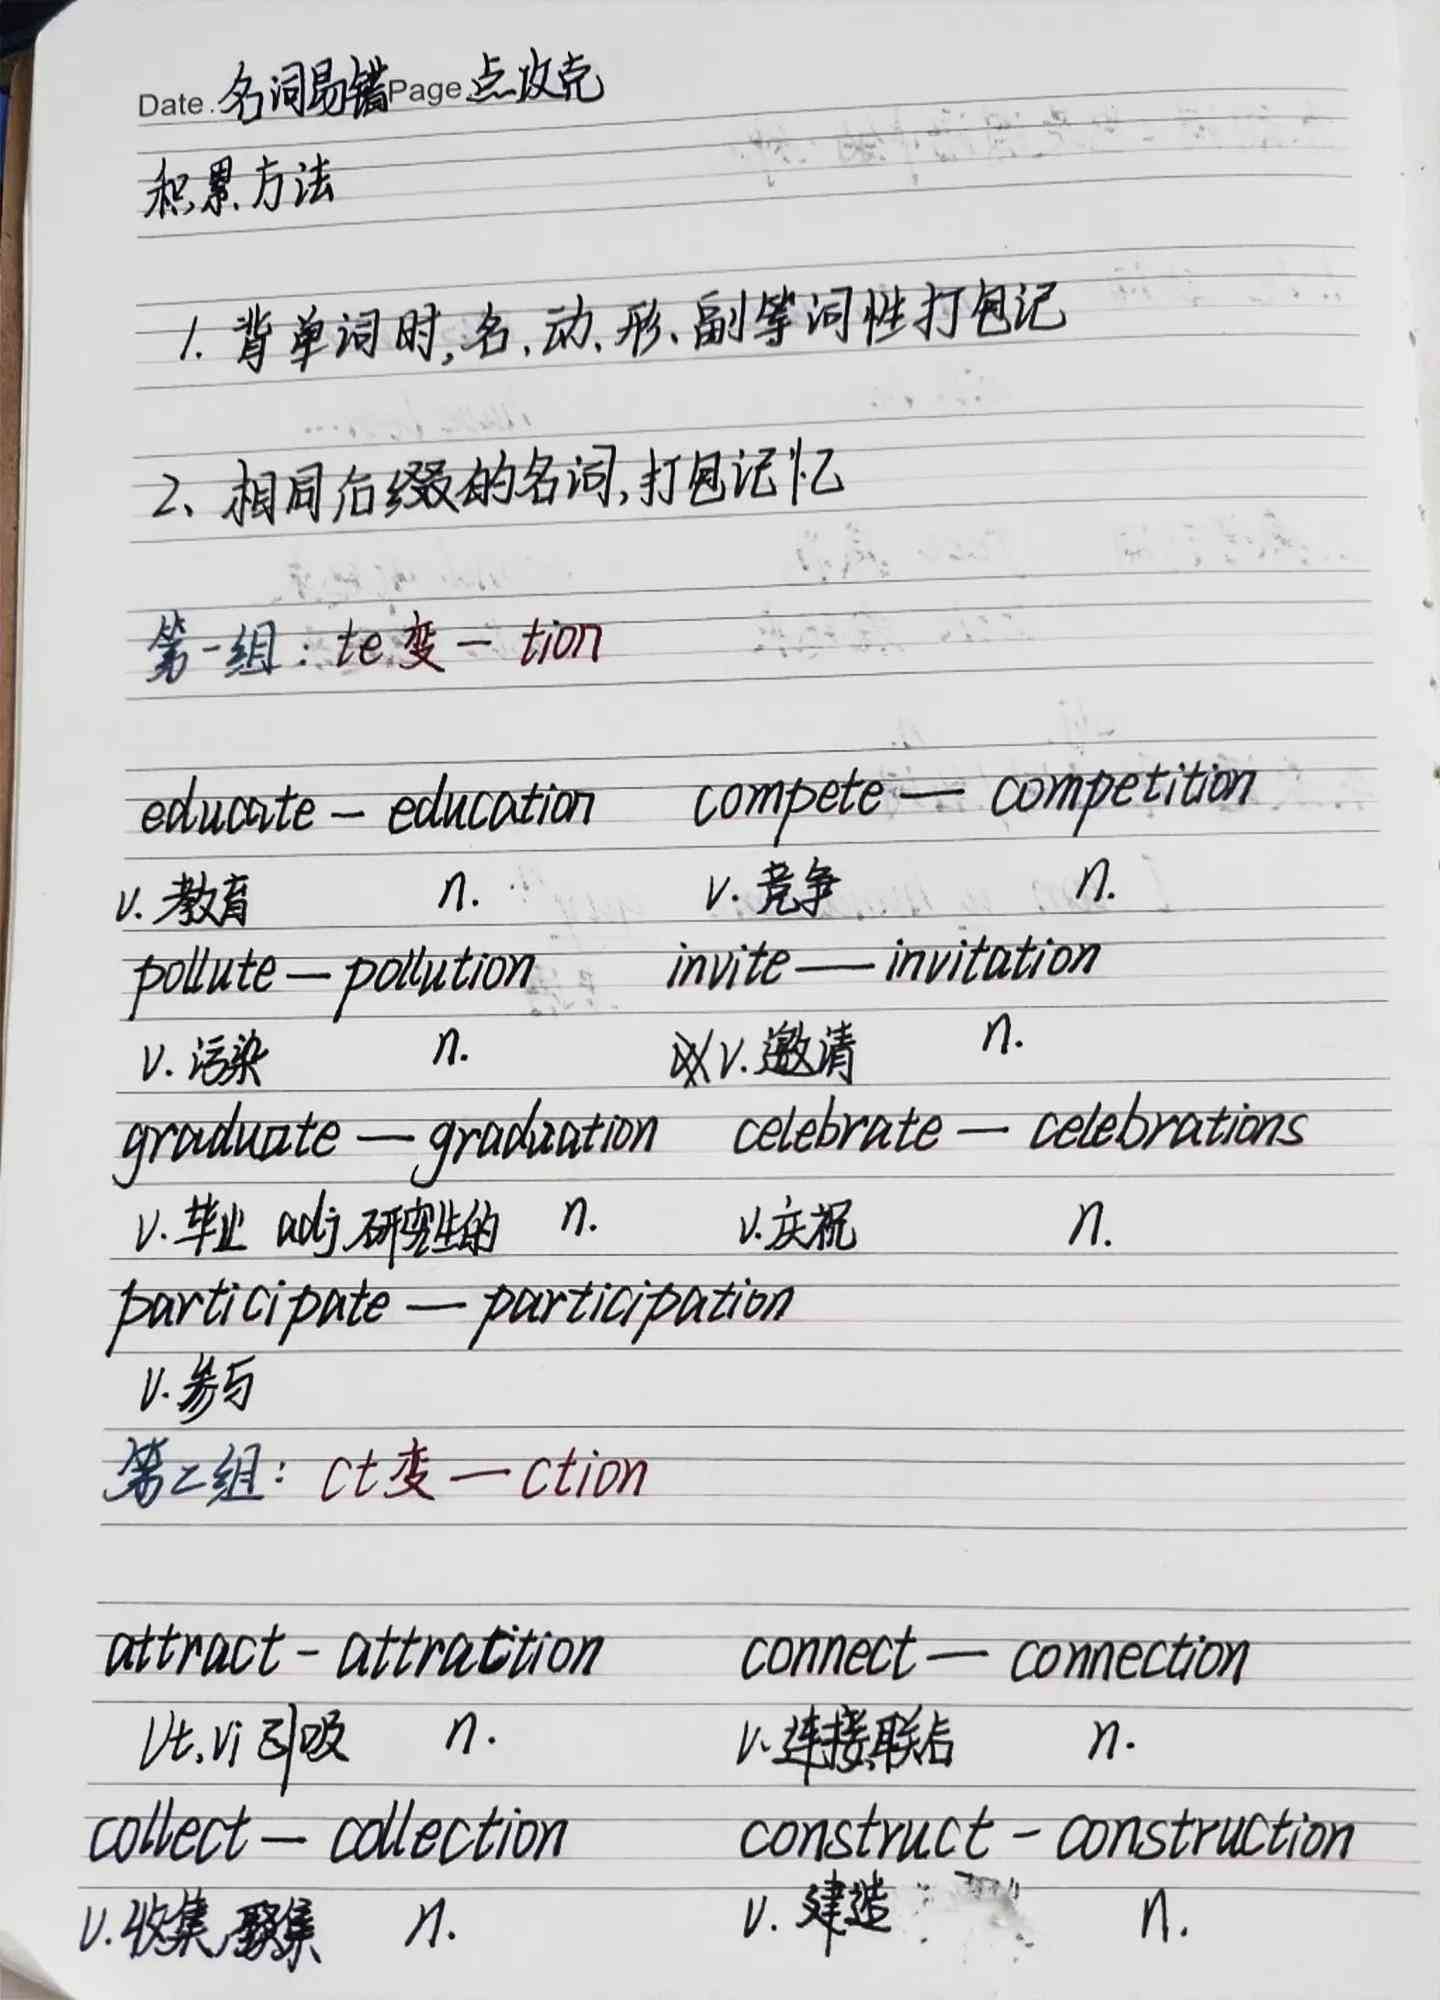 Date. 名词易错 Page 点攻克
积累方法
1. 背单词时,名、动、形、副等词性打包记
2、相同后缀的名词,打包记忆
第一组: te变— tion
educate — education compete — competition
v. 教育 n. v. 竞争 n.
pollute — pollution invite — invitation
v. 污染 n. v. 邀请 n.
graduate — graduation celebrate — celebrations
v. 毕业 adj 研究生的 n. v. 庆祝 n.
participate — participation
v. 参与
第二组: ct变 — ction
attract - attraction connect — connection
Vt, vi 引吸 n. v. 连接,联结 n.
collect — collection construct - construction
v. 收集,聚集 n. v. 建造 n.